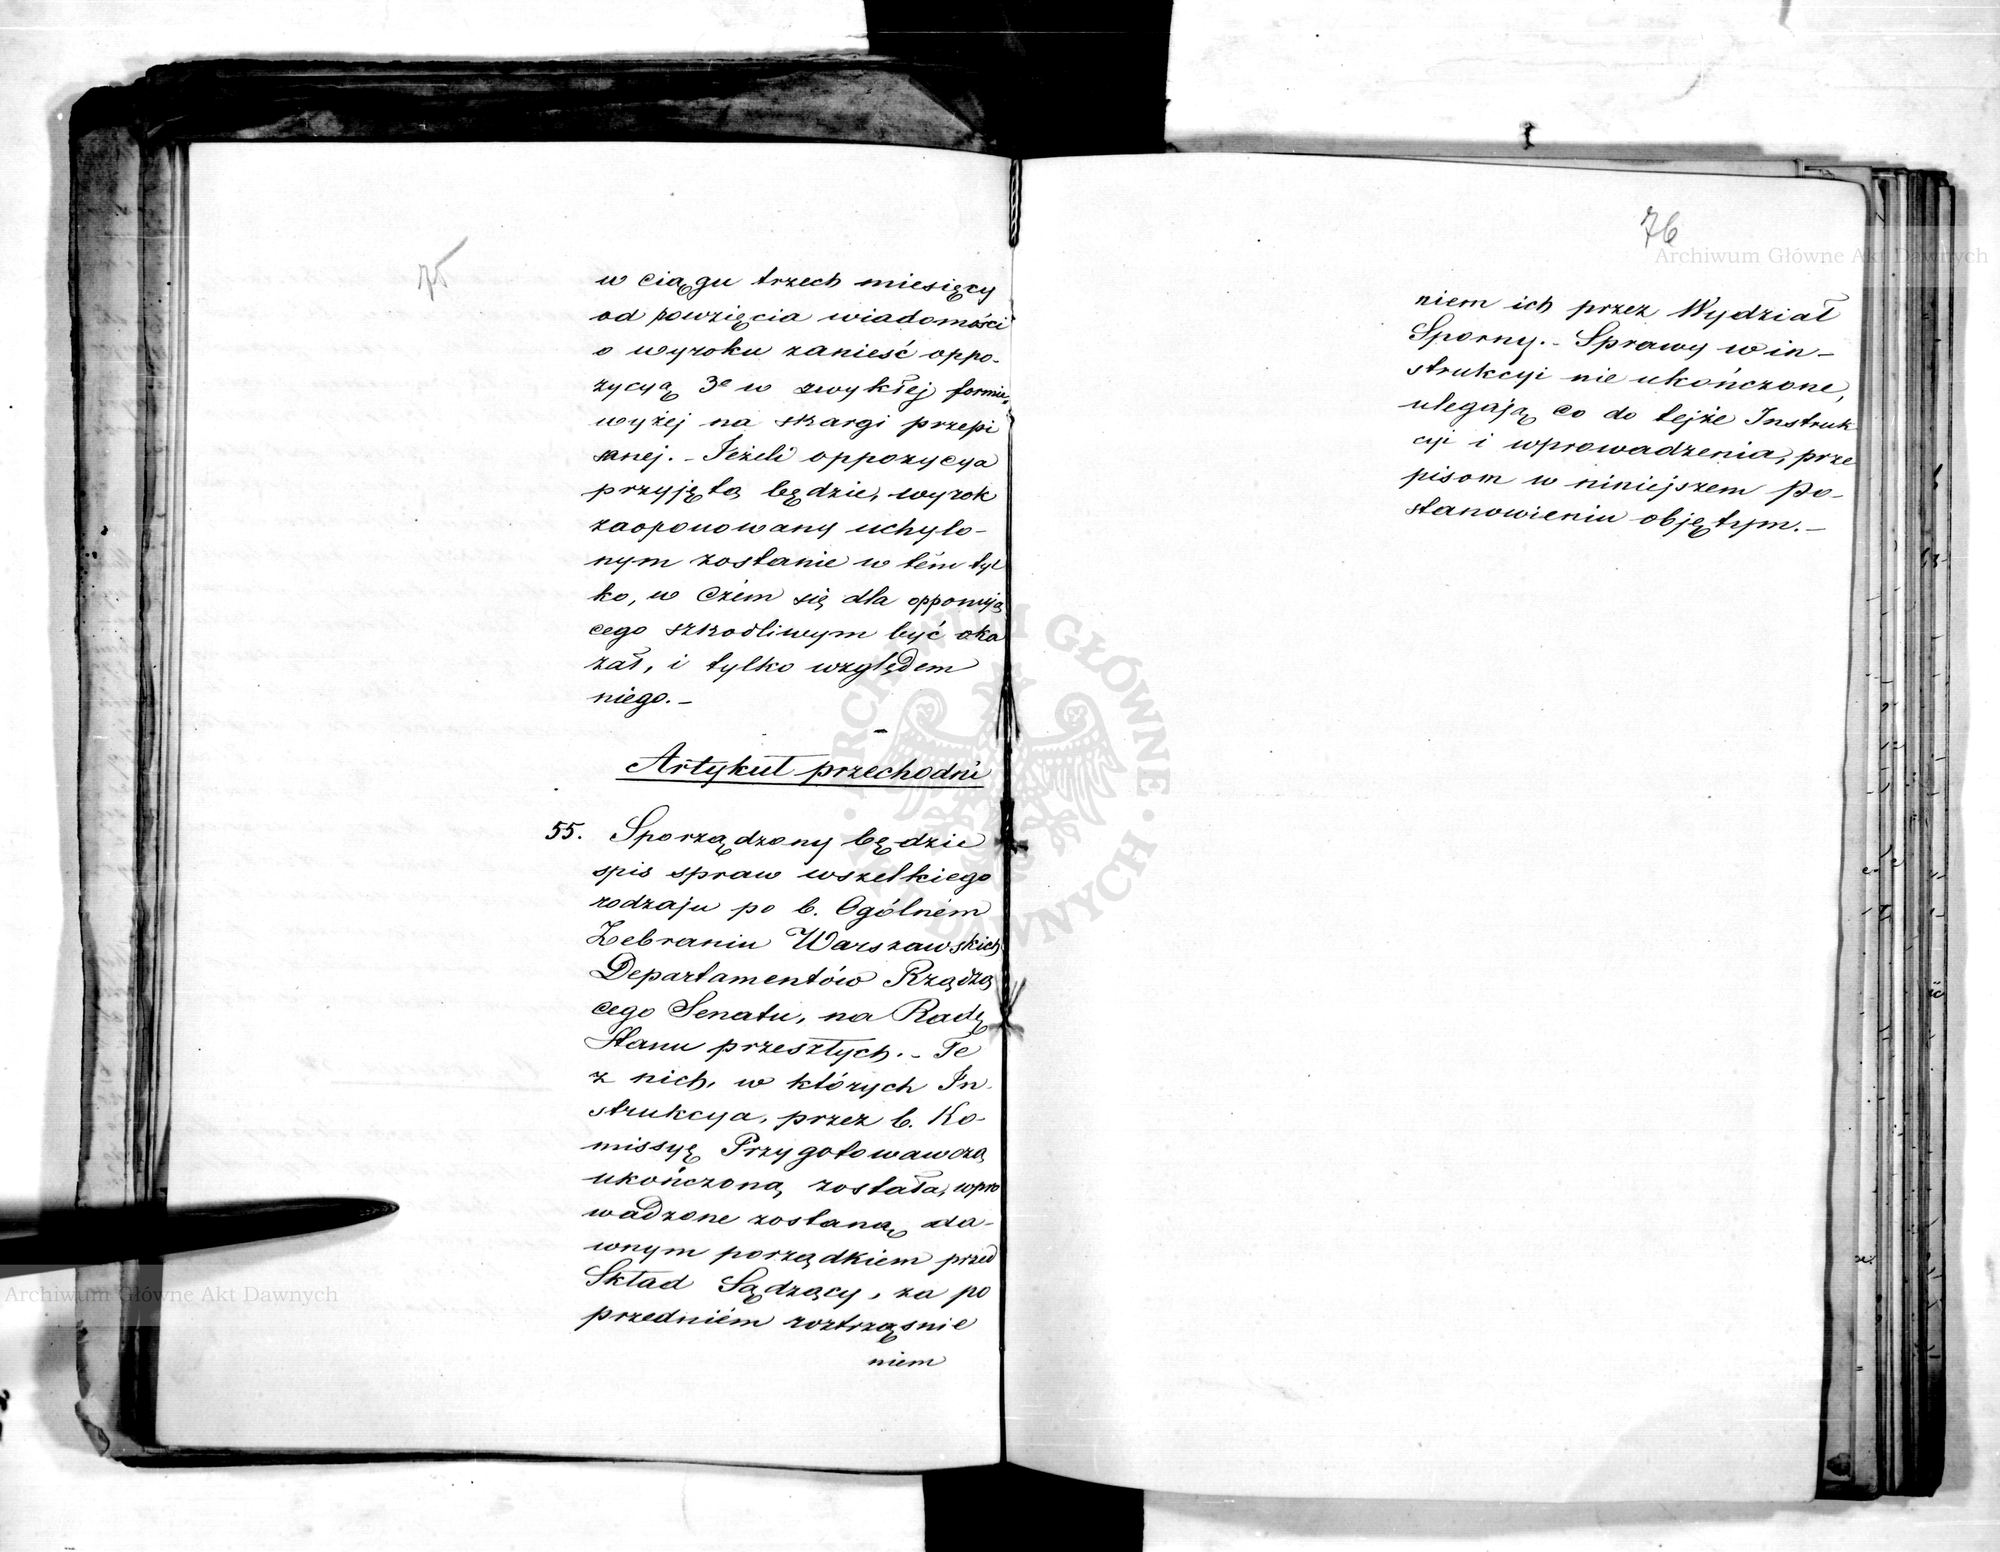 75
w ciągu trzech miesięcy
od powzięcia wiadomości
o wyroku zanieść oppo-
zycyą 3e w zwykłej formie,
wyżej na skargi przepi
sanej. - Jeżeli oppozycya
przyjętą będzie, wyrok
zaoponowany uchylo-
nym zostanie w tém tyl
ko, w czém się dla opponują
cego szkodliwym być oka
zał, i tylko względem
niego. -
Artykuł przechodni
55. Sporządzony będzie
spis spraw wszelkiego
rodzaju po b. Ogólném
Zebraniu Warszawskich
Departamentów Rządzą
cego Senatu, na Radę
Stanu przeszłych. - Te
z nich, w których In-
strukcya, przez b. Ko-
missyę Przygotowawczą
ukończoną została, wpro
wadzone zostaną da-
wnym porządkiem przed
Skład Sądzący, za po
przedniém roztrząśnie
niem
76
niem ich przez Wydział
Sporny. - Sprawy w in-
strukcyi nie ukończone,
ulegają co do tejże Instruk
cyi i wprowadzenia, prze
pisom w niniejszem Po-
stanowieniu objętym. -
Archiwum Główne Akt Dawnych
Archiwum Główne Akt Dawnych
ARCHIWUM GŁÓWNE AKT DAWNYCH